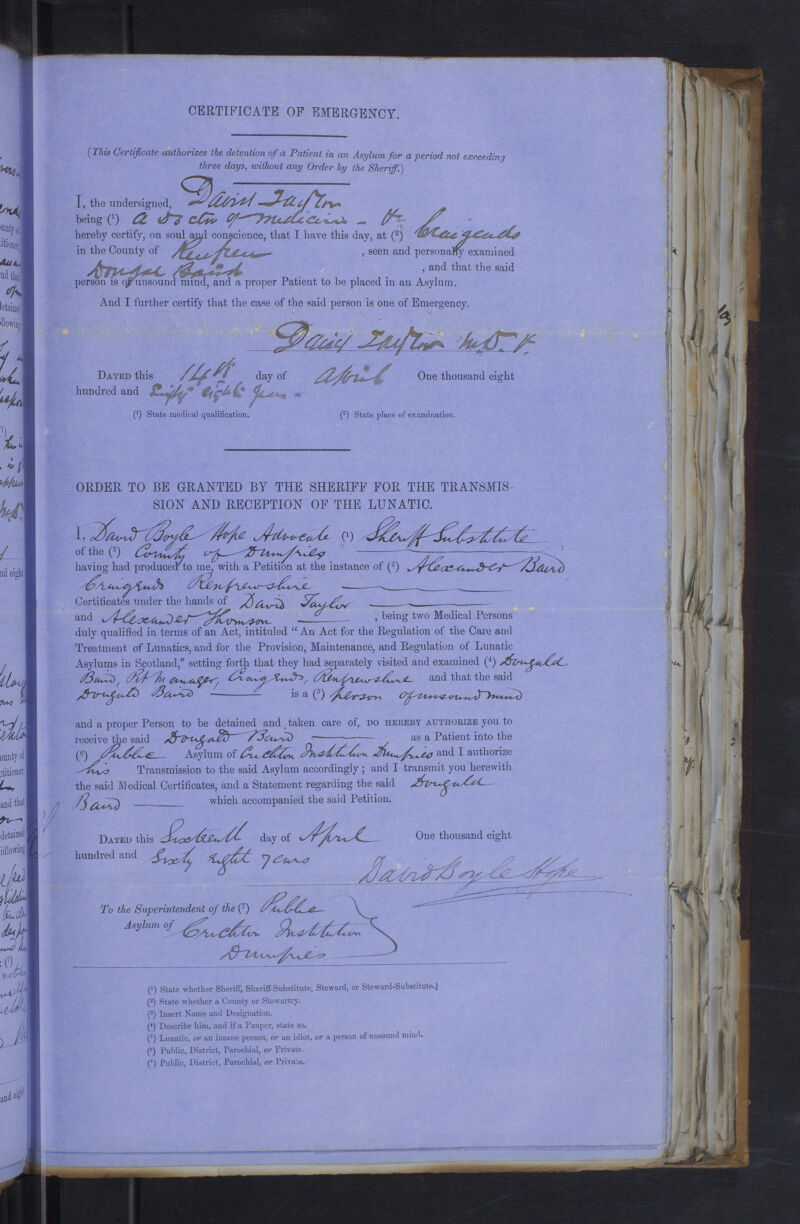 CERTIFICATE OF EMERGENCY.
(This Certificate authorizes the detention of a Patient in an Asylum for a period not exceeding
three days, without any Order by the Sheriff.)
I, the undersigned, David Taylor
being (1) a Doctor of Medicine - &c
hereby certify, on soul and conscience, that I have this day, at (2) Craigends
in the County of Renfrew , seen and personally examined
Dougal Baird , and that the said
person is of unsound mind, and a proper Patient to be placed in an Asylum.
And I further certify that the case of the said person is one of Emergency.
David Taylor M.D. &c
DATED this 14th day of April One thousand eight
hundred and Sixty eight years
(1) State medical qualification. (2) State place of examination.
ORDER TO BE GRANTED BY THE SHERIFF FOR THE TRANSMIS-
SION AND RECEPTION OF THE LUNATIC.
I, David Boyle Hope Advocate (1) Sheriff Substitute
of the (2) County of Dumfries
having had produced to me, with a Petition at the instance of (3) Alexander Baird
Craigends Renfrewshire
Certificates under the hands of David Taylor
and Alexander Thomson , being two Medical Persons
duly qualified in terms of an Act, intituled "An Act for the Regulation of the Care and
Treatment of Lunatics, and for the Provision, Maintenance, and Regulation of Lunatic
Asylums in Scotland," setting forth that they had separately visited and examined (4) Dougald
Baird, Pit Manager, Craigends, Renfrewshire and that the said
Dougald Baird is a (5) person of unsound mind
and a proper Person to be detained and taken care of, DO HEREBY AUTHORIZE you to
receive the said Dougald Baird as a Patient into the
(6) Public Asylum of Crichton Institution Dumfries and I authorize
his Transmission to the said Asylum accordingly; and I transmit you herewith
the said Medical Certificates, and a Statement regarding the said Dougald
Baird which accompanied the said Petition.
DATED this Sixteenth day of April One thousand eight
hundred and Sixty eight years
David Boyle Hope
To the Superintendent of the (7) Public
Asylum of Crichton Institution
Dumfries
(1) State whether Sheriff, Sheriff-Substitute, Steward, or Steward-Substitute.]
(2) State whether a County or Stewartry.
(3) Insert Name and Designation.
(4) Describe him, and if a Pauper, state so.
(5) Lunatic, or an insane person, or an idiot, or a person of unsound mind.
(6) Public, District, Parochial, or Private.
(7) Public, District, Parochial, or Private.